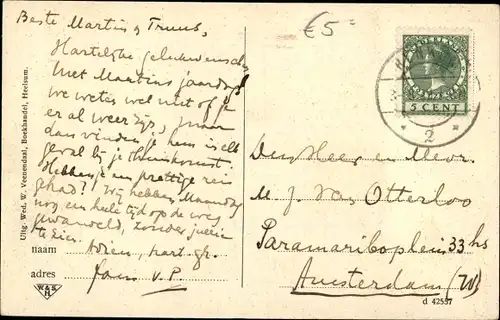 Beste Martin & Truus,
Hartelijke gelukwenschen
met Martins jaardag!
We weten wel niet of je
er al weer zijt, maar
dan vinden je hem in elk
geval bij je thuiskomst.
Hebben je een prettige reis
gehad? Wij hebben Maandag
nog een heele tijd op de weg
gewandeld, zonder jullie
te zien.
naam
hart. gr.
adres
v. P.
W&S
H
Uitg. Wed. W. Veenendaal, Boekhandel, Heelsum.
€5=
NEDERLAND
5 CENT
2
Den Heer en Mevr.
M. J. Van Otterloo
Paramariboplein 33 hs
Amsterdam (W)
d. 42557